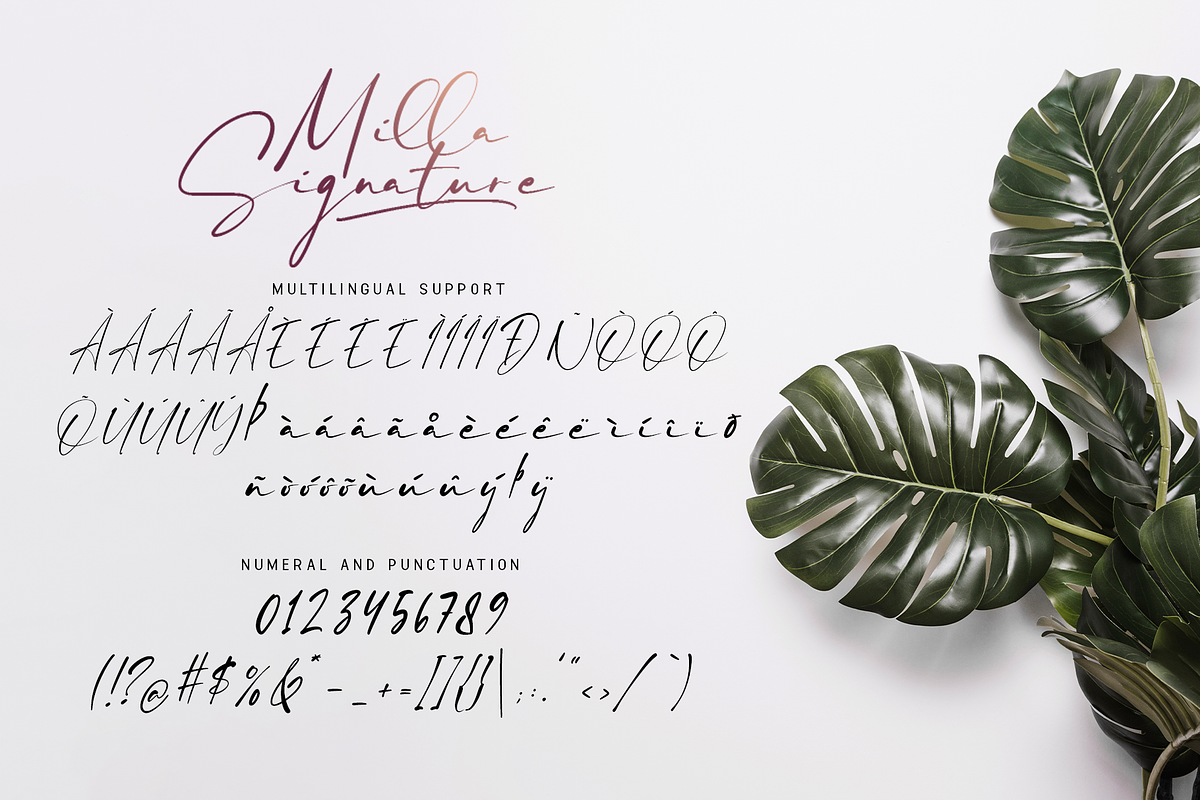 Milla
Signature
MULTILINGUAL SUPPORT
ÀÁÂÃÅÈÉÊËÌÍÎÏÐÑÒÓÔ
ÕÙÚÛÝÞàáâãåèéêëìíîïð
ñòóôõùúûýþÿ
NUMERAL AND PUNCTUATION
0123456789
(!?@#$%&*-_+=[]{}|;:.'"<>/`)